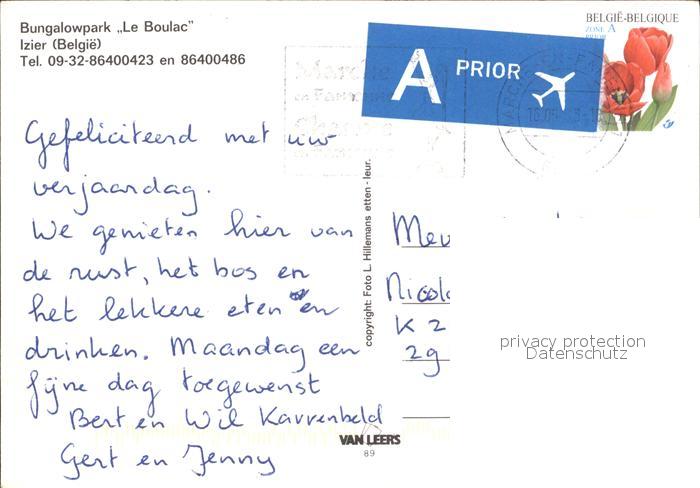 Bungalowpark „Le Boulac”
Izier (België)
Tel. 09-32-86400423 en 86400486
BELGIË-BELGIQUE
ZONE A
PRIOR
A PRIOR
Gefeliciteerd met uw
verjaardag.
We genieten hier van
de rust, het bos en
het lekkere eten en
drinken. Maandag een
fijne dag toegewenst
Bert en Wil Karrenbeld
Gert en Jenny
copyright: Foto L. Hillemans etten-leur.
Mev
Nicol
K 2
29
privacy protection
Datenschutz
VAN LEERS
89